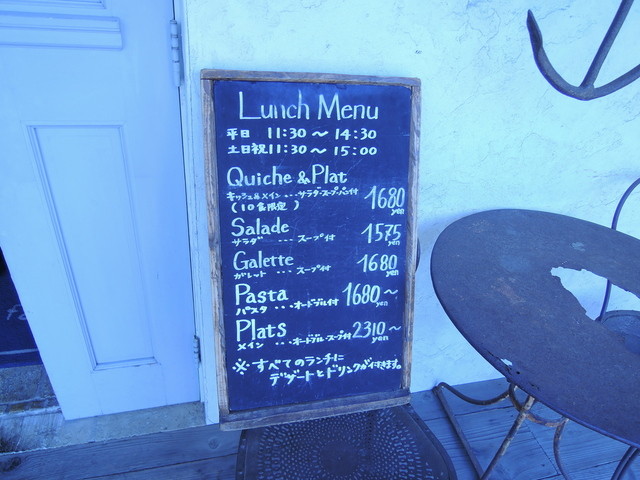 Lunch Menu
平日 11:30 〜 14:30
土日祝 11:30 〜 15:00
Quiche & Plat
キッシュ&メイン ... サラダ・スープ・パン付 1680 yen
(10食限定)
Salade 1575 yen
サラダ .... スープ付
Galette 1680 yen
ガレット ... スープ付
Pasta 1680〜 yen
パスタ ... オードブル付
Plats 2310〜 yen
メイン ... オードブル・スープ付
※ すべてのランチに
デザートとドリンクが付きます。